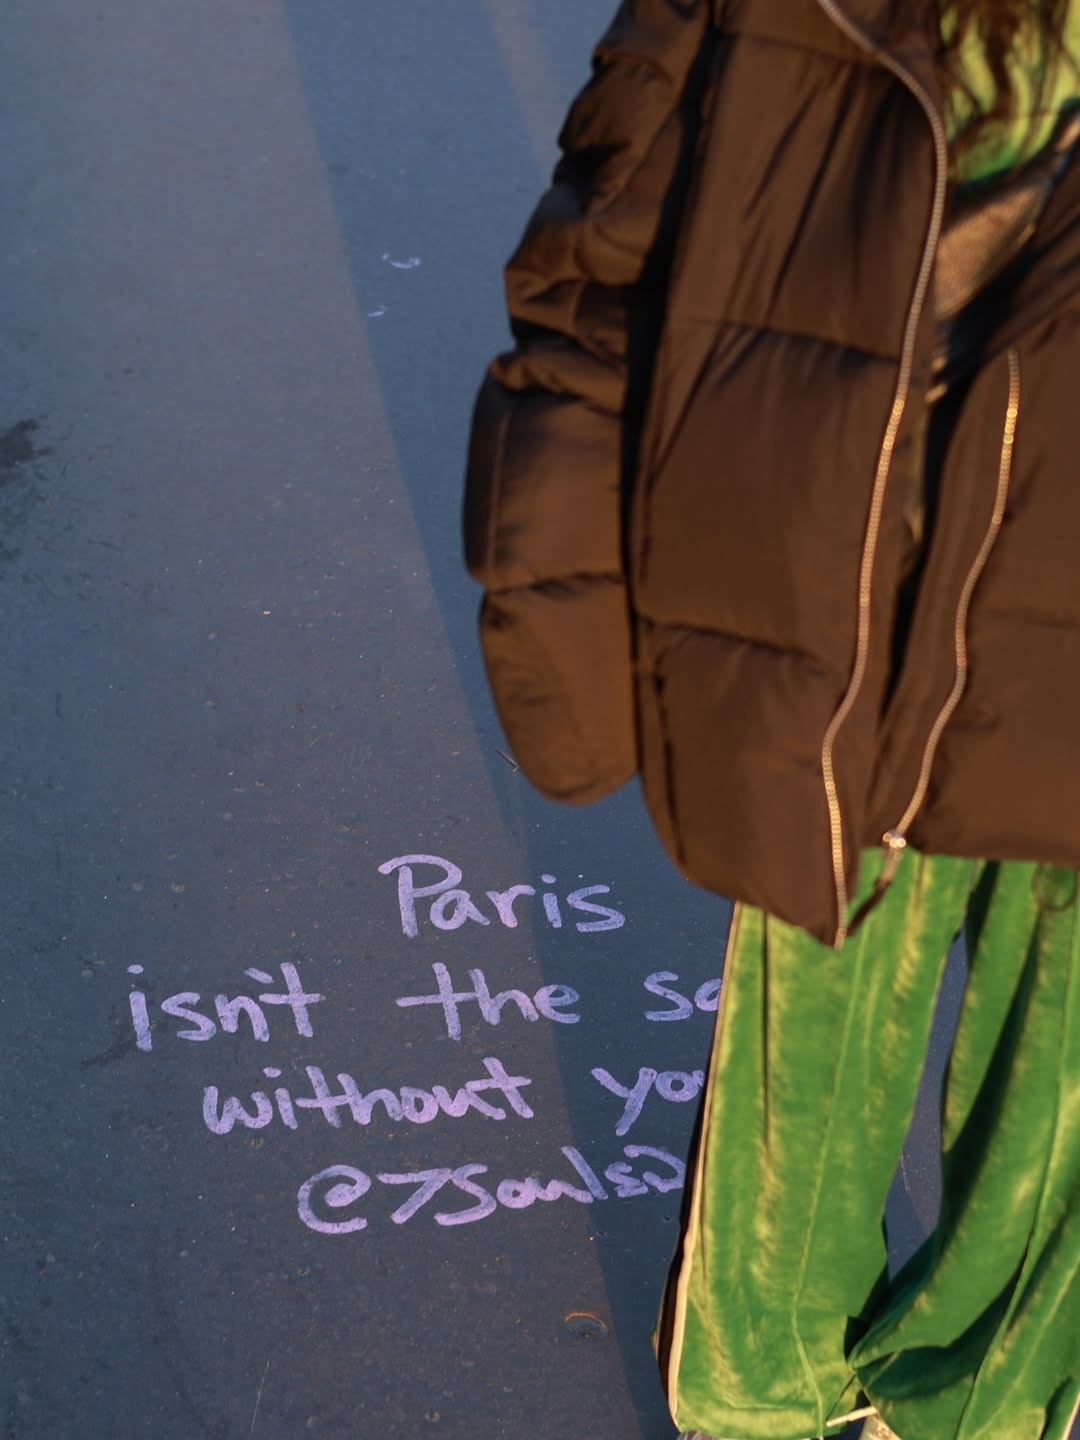 Paris
isn't the
without
@7Souls